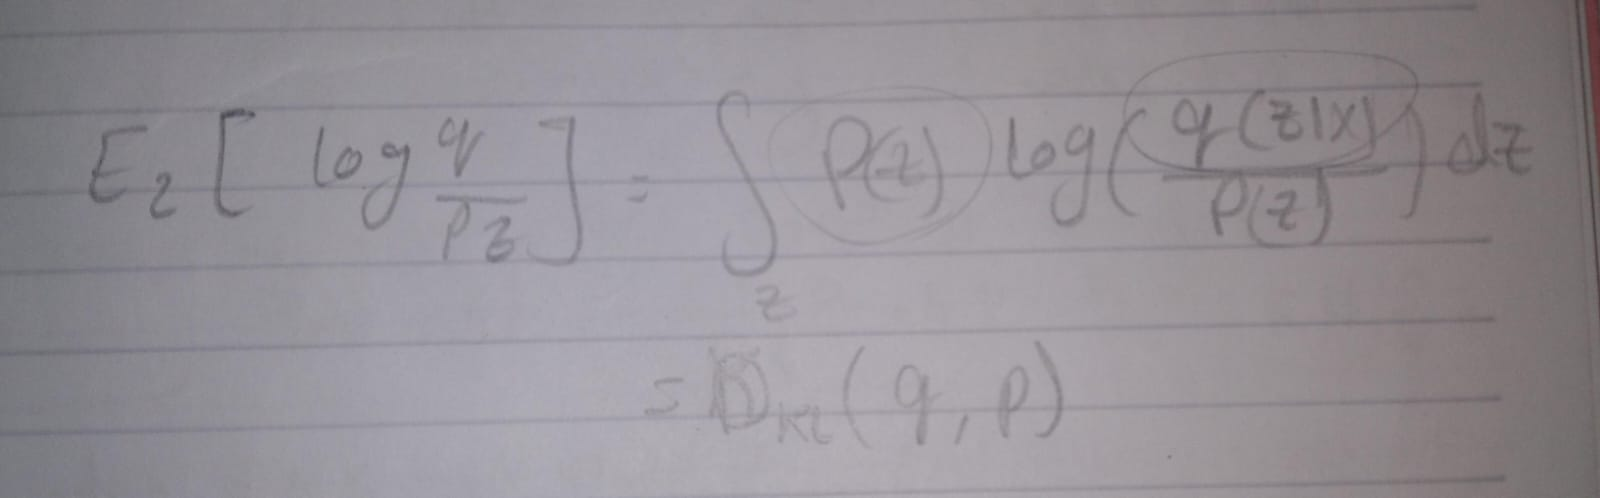 E_z [ log q/p_z ] = ∫_z P(z) log( q(z|x) / P(z) ) dz
= D_KL( q, p )